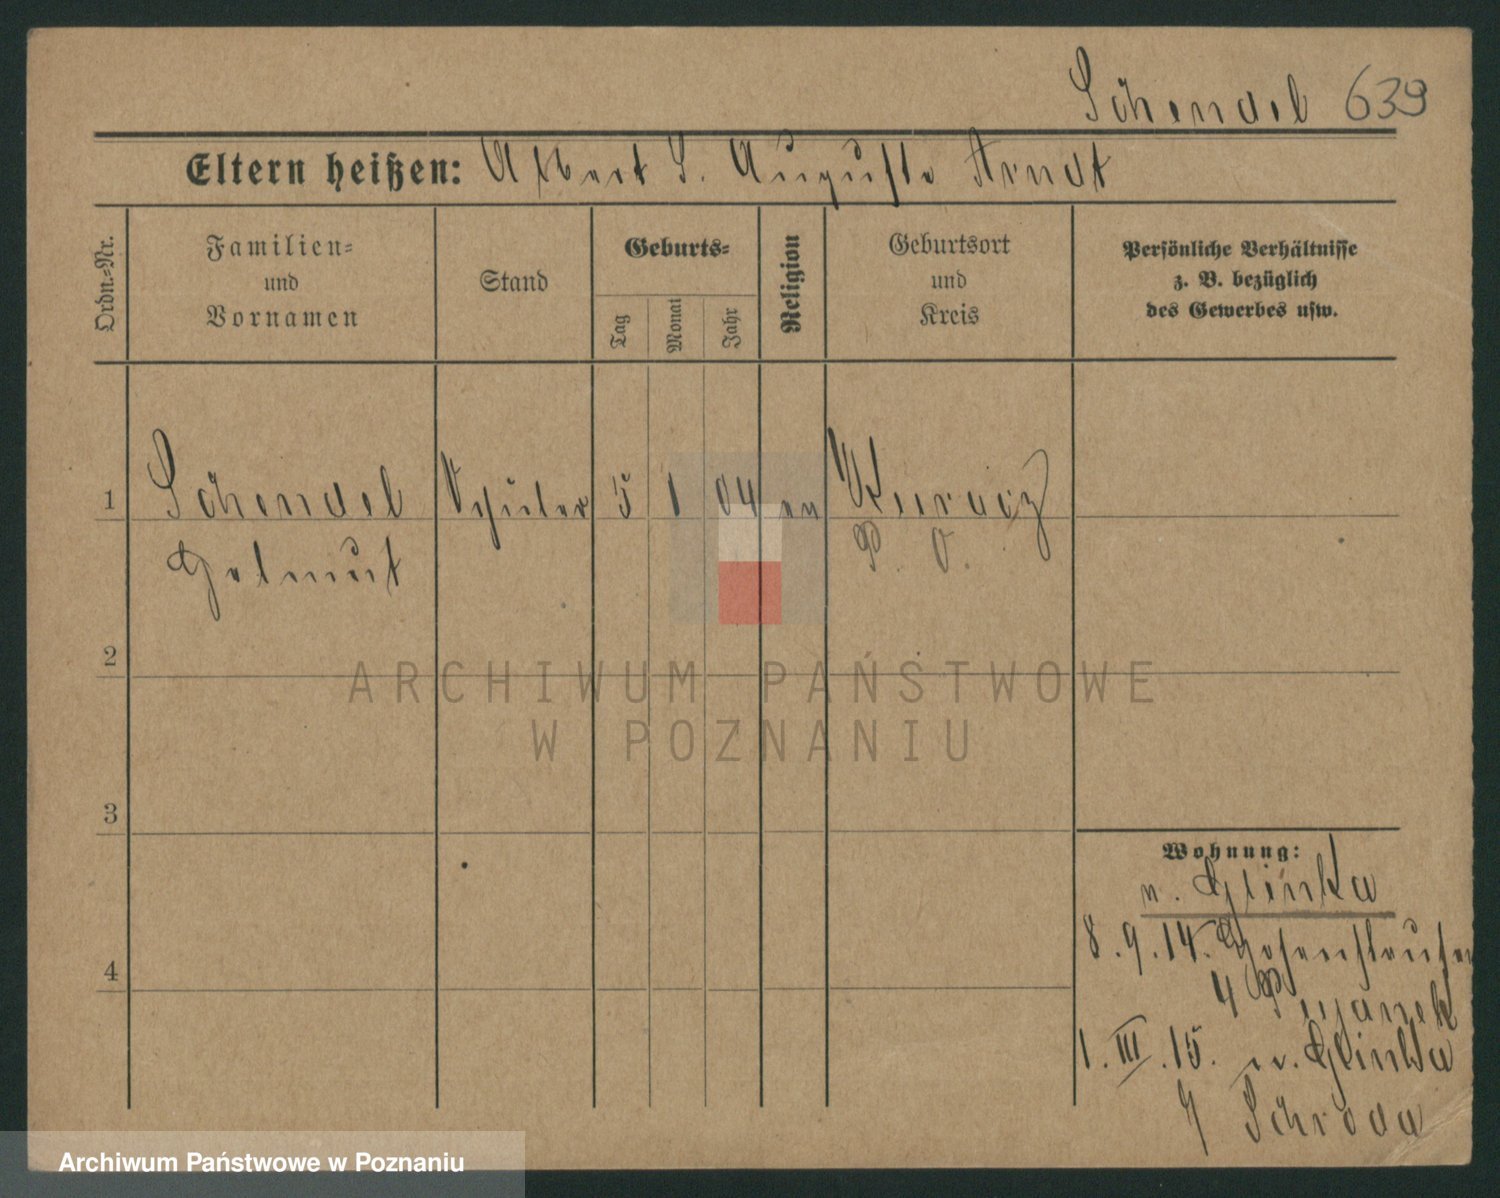 Schendel 639
Eltern heißen: Albert S. Auguste Arndt
Ordn.-Nr.
Familien-
und
Vornamen
Stand
Geburts-
Tag
Monat
Jahr
Religion
Geburtsort
und
Kreis
Persönliche Verhältnisse
z. B. bezüglich
des Gewerbes usw.
1 Schendel Schüler 5 1 04 ev
P. O.
Helmut
2
3
4
Wohnung:
n. Glinka
8.9.14. Hohenstaufen
4
1.III.15. n. Glinka
Schroda
ARCHIWUM PAŃSTWOWE
W POZNANIU
Archiwum Państwowe w Poznaniu